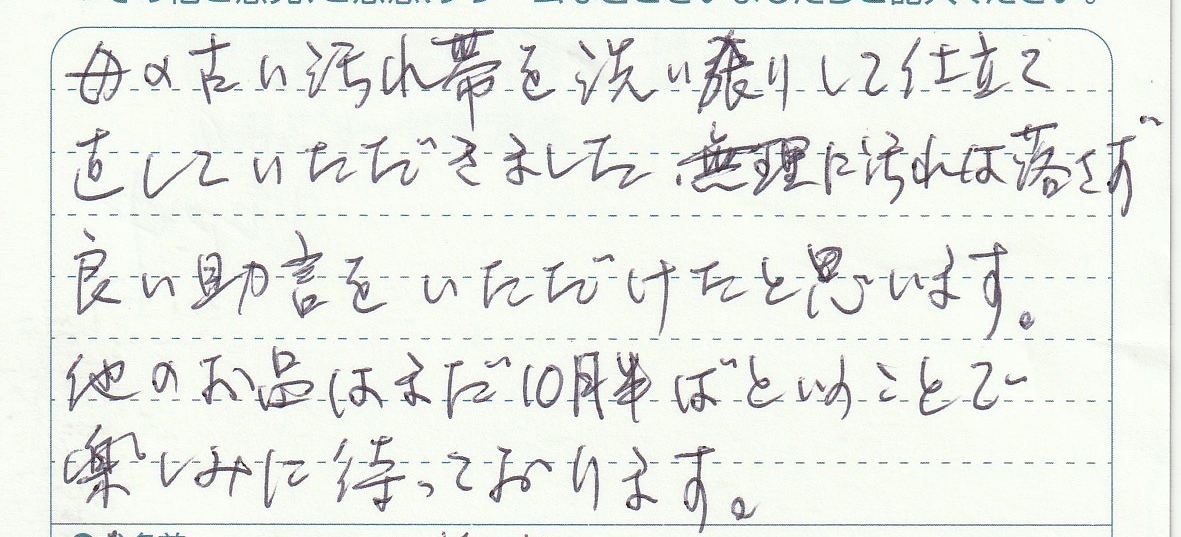 母の古い汚れ帯を洗い張りして仕立て
直していただきました 無理に汚れは落さず
良い助言をいただけたと思います。
他のお品はまだ10月半ばということで
楽しみに待っております。